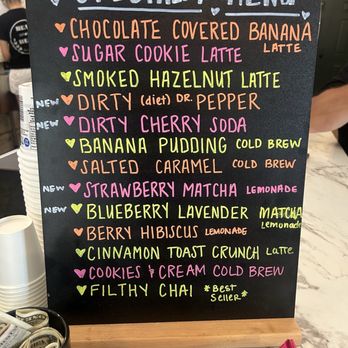 MENU
CHOCOLATE COVERED BANANA
LATTE
SUGAR COOKIE LATTE
SMOKED HAZELNUT LATTE
NEW DIRTY (diet) DR. PEPPER
NEW DIRTY CHERRY SODA
BANANA PUDDING COLD BREW
SALTED CARAMEL COLD BREW
NEW STRAWBERRY MATCHA LEMONADE
NEW BLUEBERRY LAVENDER MATCHA
Lemonade
BERRY HIBISCUS LEMONADE
CINNAMON TOAST CRUNCH Latte
COOKIES & CREAM COLD BREW
FILTHY CHAI *Best
Seller*